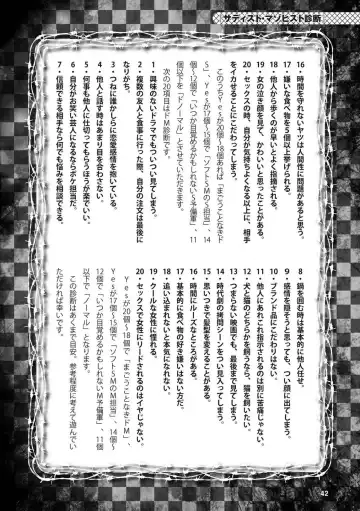 サディスト・マゾヒスト診断
16・時間を守れないヤツは人間性に問題があると思う。
17・嫌いな食べ物を5個以上挙げられる。
18・他人から歩くのが早いとよく指摘される。
19・女の泣き顔を見て、かわいいと思ったことがある。
20・セックスの時、自分が気持ちよくなる以上に、相手
をイカせることにこだわってしまう。
このうちYesが20個〜18個あれば、「まごうことなきド
S」、Yesが17個〜15個で「ソフトSMのS担当」、14
個〜12個で「いつか目覚めるかもしれないS予備軍」、11
個以下を「ドノーマル」とさせていただきます。
次の20項目はドM診断です。
1・興味のないドラマでもついつい見てしまう。
2・複数の友人と食事に行った際、自分の注文は最後に
なりがち。
3・つねに誰かしらに恋愛感情を抱いている。
4・他人と話す時はあまり目を合わさない。
5・何事も他人に仕切ってもらうほうが楽でいい。
6・自分がお笑い芸人になるならボケ担当だ。
7・信頼できる相手なら何でも悩みを相談できる。
8・鍋を囲む時は基本的に他人任せ。
9・感情を隠そうと思っても、つい顔に出てしまう。
10・ブランド品にこだわりはない。
11・他人にあれこれ指示されるのは別に苦痛じゃない。
12・犬と猫のどちらかを飼うなら、猫を飼いたい。
13・つまらない映画でも、最後まで見てしまう。
14・時代劇の拷問シーンをつい見入ってしまう。
15・思いつきで髪型を変えることがある。
16・時間にルーズなところがある。
17・基本的に食べ物の好き嫌いはない方だ。
18・追い込まれないと本気になれない。
19・クールな女性に憧れる。
20・セックスで女性にリードされるのはイヤじゃない。
Yesが20個〜18個で「まごうことなきドM」、
Yesが17個〜15個で「ソフトSMのM担当」、14個〜
12個で「いつか目覚めるかもしれないM予備軍」、11個
以下で「ノーマル」となります。
この診断はあくまで目安、参考程度に考えて遊んでい
ただければ幸いです。
42